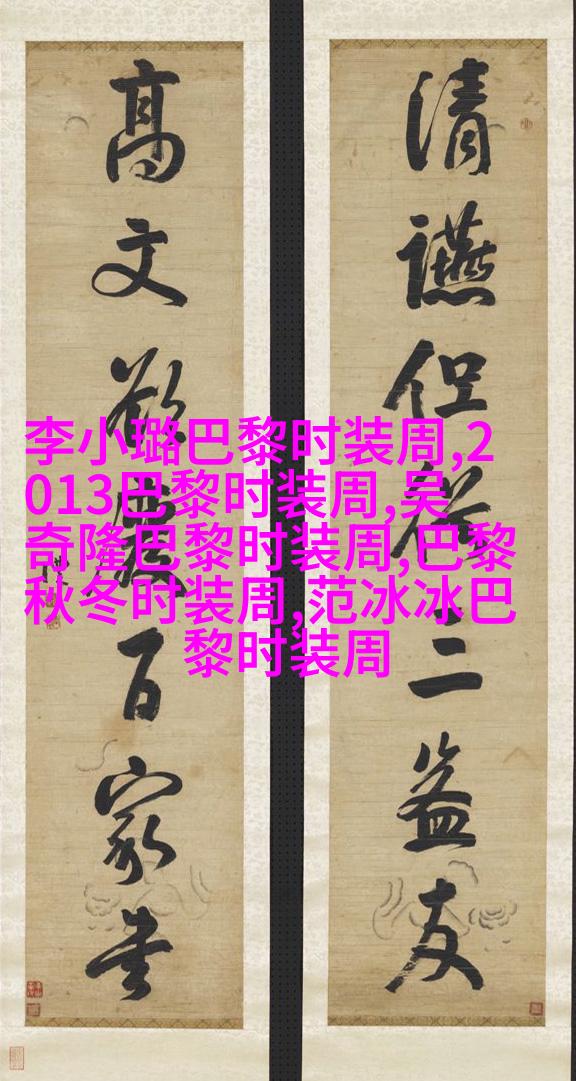 清讌但二益友
高文欲百家書
李小璐巴黎时装周,2
013巴黎时装周,吴
奇隆巴黎时装周,巴黎
秋冬时装周,范冰冰巴
黎时装周